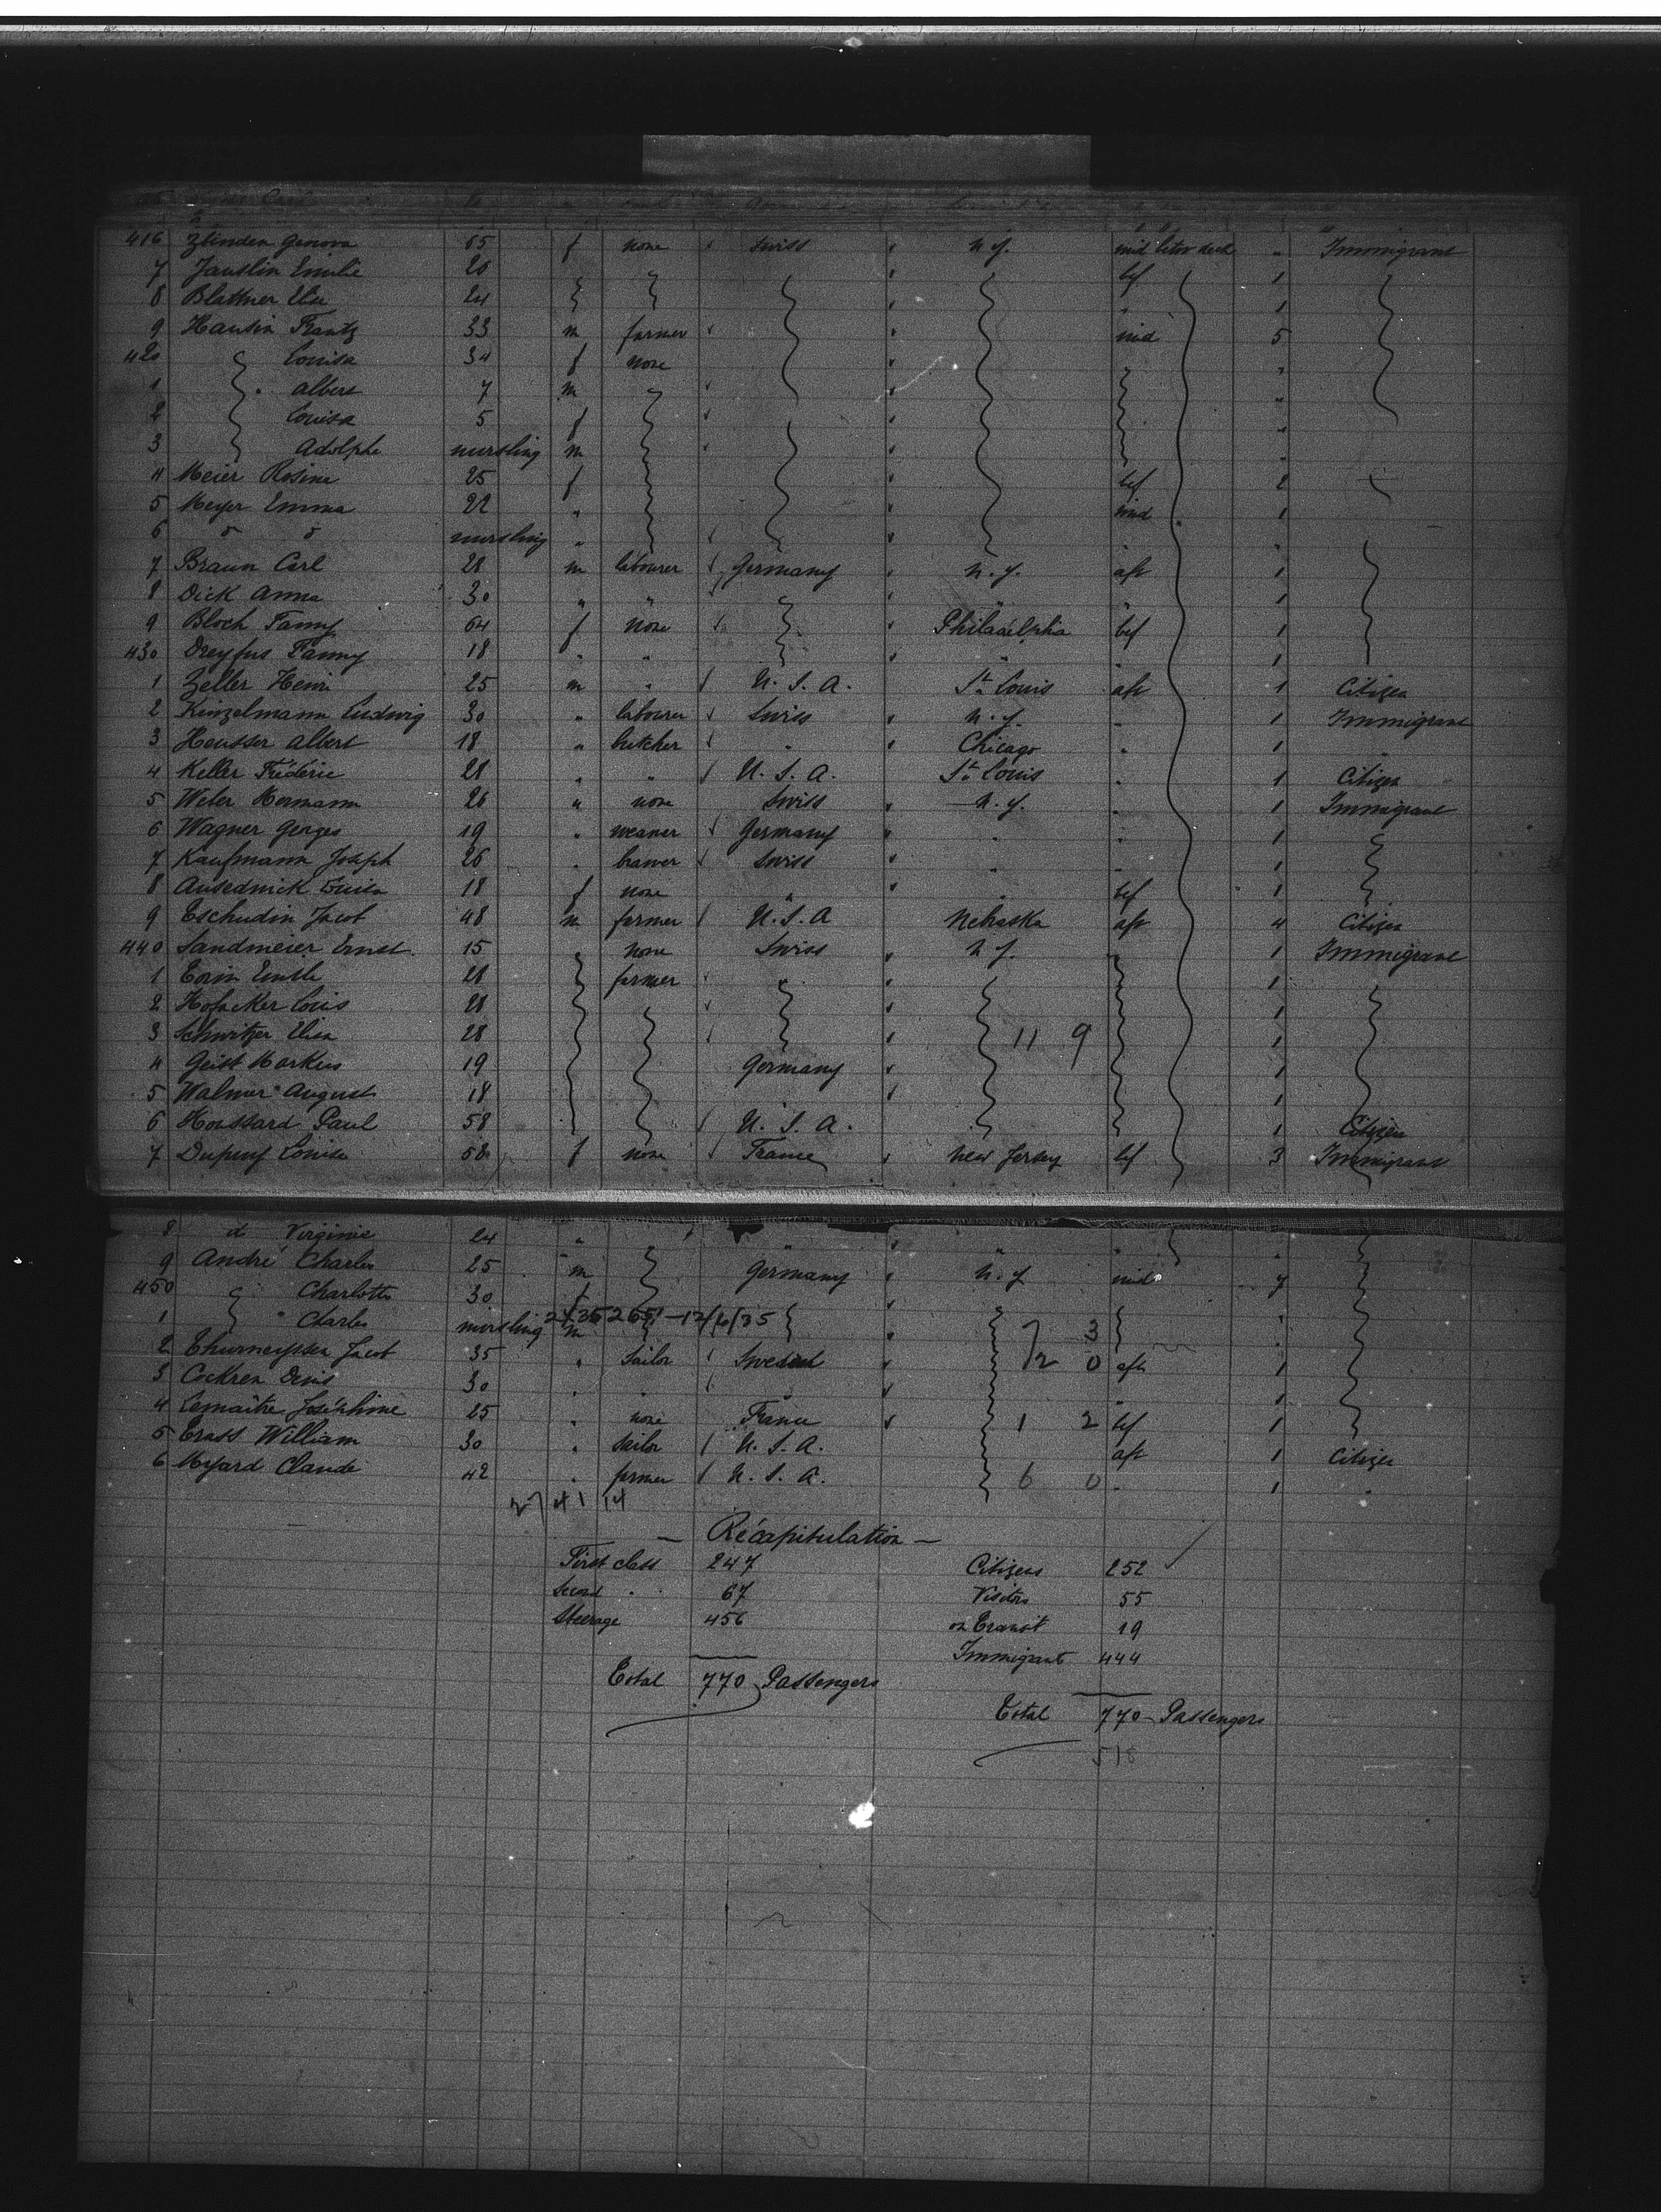 416 Zlinden Genova 65 f none Swiss N.Y. mid betw deck " Immigrant
7 Jauslin Emilie 26 bf 1
8 Blattner Elise 24 " 1
9 Hausin Frantz 33 m farmer mid 5
420 Louisa 34 f none "
1 " Albert 7 m "
2 Louisa 5 f "
3 Adolphe nursling m "
4 Meier Rosine 25 f bf 2
5 Meyer Emma 22 " mid 1
6 d d nursling " " "
7 Braun Carl 28 m labourer Germany N.Y. aft 1
8 Dick Anna 30 " " " " 1
9 Bloch Fanny 64 f none Philadelphia bef 1
430 Dreyfus Fanny 18 " " " " 1
1 Zeller Henri 25 m " U.S.A. St Louis aft 1 Citizen
2 Kinzelmann Ludwig 30 " labourer Swiss N.Y. " 1 Immigrant
3 Heusser Albert 18 " butcher " Chicago " 1 "
4 Keller Frédéric 28 " " U.S.A. St Louis " 1 Citizen
5 Weber Hermann 26 " none Swiss N.Y. " 1 Immigrant
6 Wagner Georges 19 " weaver Germany " " 1
7 Kaufmann Joseph 26 " brewer Swiss " " 1
8 Louisa 18 f none " " bef 1
9 Tschudin Jacob 48 m farmer U.S.A Nebraska aft 4 Citizen
440 Sandmeier Ernst 15 " none Swiss N.Y. " 1 Immigrant
1 Emile 28 farmer " 1
2 Hofacker Louis 28 1
3 Schwitzer Elisa 28 11 9 1
4 Geist Markus 19 Germany 1
5 Walmer August 18 1
6 Houssard Paul 58 U.S.A. 1 Citizen
7 Dupuy Louise 58 f none France New Jersey bf 3 Immigrant
8 d Virginie 24 " " " " " "
9 André Charles 25 m Germany N.Y mid 4
450 " Charlotte 30 f
1 " Charles nursling m 7 3 "
2 Thurneyssen Jacob 35 " Sailor Swedish 12 0 aft 1
3 Cockren Denis 30 " " " " 1
4 Lemaître Joséphine 25 " none France 1 2 bf 1
5 Trass William 30 " Sailor U.S.A. aft 1 Citizen
6 Myard Claude 42 " farmer U.S.A. 6 0 " 1 "
27 41 14
— Récapitulation —
First class 247 Citizens 252
Second " 67 Visitors 55
Steerage 456 on Transit 19
Immigrants 444
Total 770 Passengers
Total 770 Passengers
518